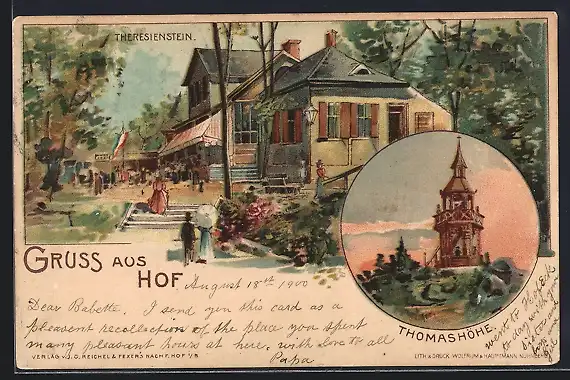 THERESIENSTEIN.
GRUSS AUS
HOF
August 18th 1900
Dear Babette. I send you this card as a
pleasent recollection of the place you spent
many pleasant hours at here, with love to all
Papa.
THOMASHÖHE.
went to
to day with you
VERLAG v. J. C. REICHEL & FEXER'S NACHF. HOF i/B.
LITH. & DRUCK WOLFRUM & HAUPTMANN NÜRNBERG